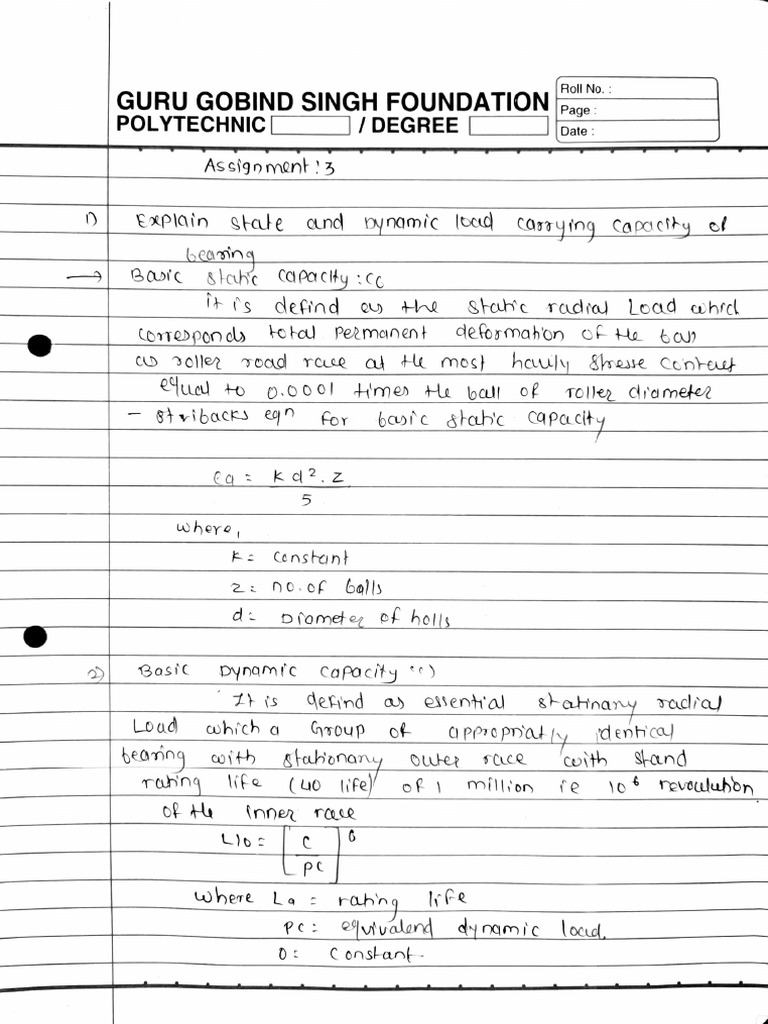 GURU GOBIND SINGH FOUNDATION
POLYTECHNIC / DEGREE
Roll No. :
Page :
Date :
Assignment : 3
1) Explain state and Dynamic load carrying capacity of
bearing
→ Basic static capacity : Co
it is defind as the static radial Load which
corresponds total permanent deformation of the ball
as roller road race at the most Stresse Contact
equal to 0.0001 times the ball of roller diameter
- stribacks eqn for basic static capacity
Ca = k d². z
5
where,
k = constant
z = no. of balls
d = Diameter of holls
2) Basic Dynamic capacity
It is defind as essential statinary radial
Load which a Group of appropriatly identical
bearing with stationary outer race with stand
rating life (40 life) of 1 million ie 10⁶ revoulution
of the inner race
L10 = [ C
PC ] 0
where La = rating life
PC = equivalend dynamic load.
0 = Constant.